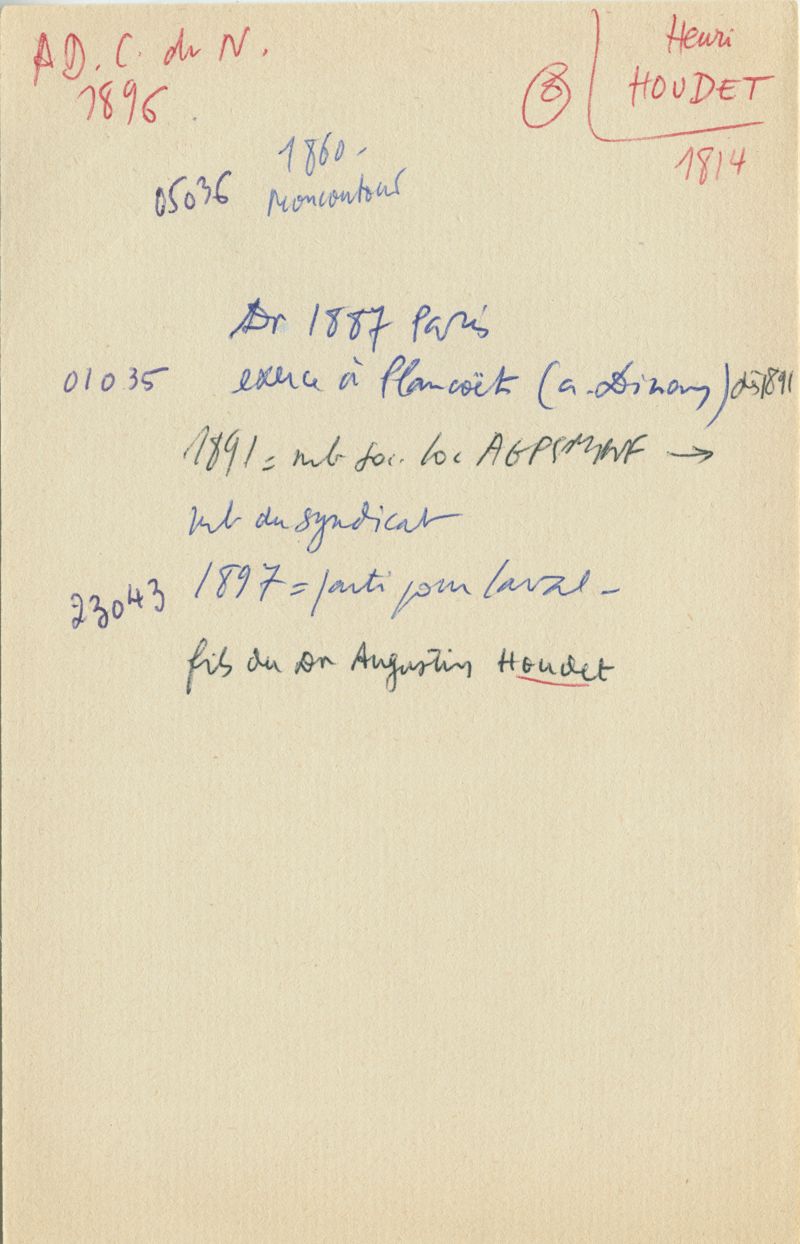 A D. C. du N.
1896
8
Henri
HOUDET
1814
1860 -
05036 Moncontour
Dr 1887 Paris
01035 exerce à Plancoët (a. Dinan) dès 1891
1891 = mb soc. loc AGPSMF →
mb du syndicat
23043 1897 = parti pour Laval -
fils du Dr Augustin Houdet